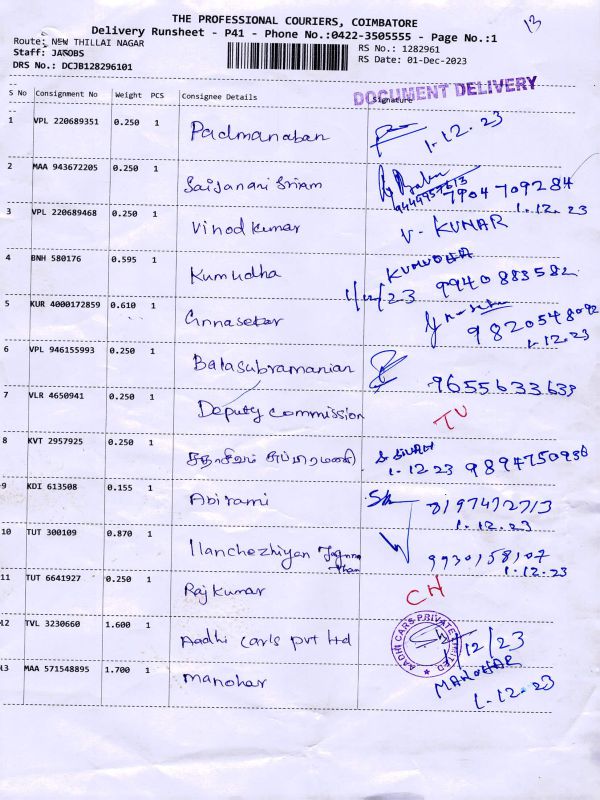 13
THE PROFESSIONAL COURIERS, COIMBATORE
Delivery Runsheet - P41 - Phone No.:0422-3505555 - Page No.:1
Route: NEW THILLAI NAGAR
RS No.: 1282961
Staff: JACOBS
RS Date: 01-Dec-2023
DRS No.: DCJB128296101
DOCUMENT DELIVERY
S No Consignment No Weight PCS Consignee Details Signature
1 VPL 220689351 0.250 1 Padmanaban 1.12.23
2 MAA 943672205 0.250 1 Saijanani Sriram 7904709284
1.12.23
3 VPL 220689468 0.250 1 Vinod kumar V. KUNAR
4 BNH 580176 0.595 1 Kumudha KUMUDHA
9940883582
5 KUR 4000172859 0.610 1 9820548092
1.12.23
6 VPL 946155993 0.250 1 Balasubramanian 9655633633
7 VLR 4650941 0.250 1 Deputy Commission
8 KVT 2957925 0.250 1
1.12.23 9894750936
9 KDI 613508 0.155 1 Abirami 8197472713
1.12.23
10 TUT 300109 0.870 1 Ilanchezhiyan 9930158107
1.12.23
11 TUT 6641927 0.250 1 Rajkumar CH
12 TVL 3230660 1.600 1 Aadhi cars pvt ltd 1/12/23
AADHI CARS PRIVATE LIMITED
13 MAA 571548895 1.700 1 manohar MANOHAR
1.12.23